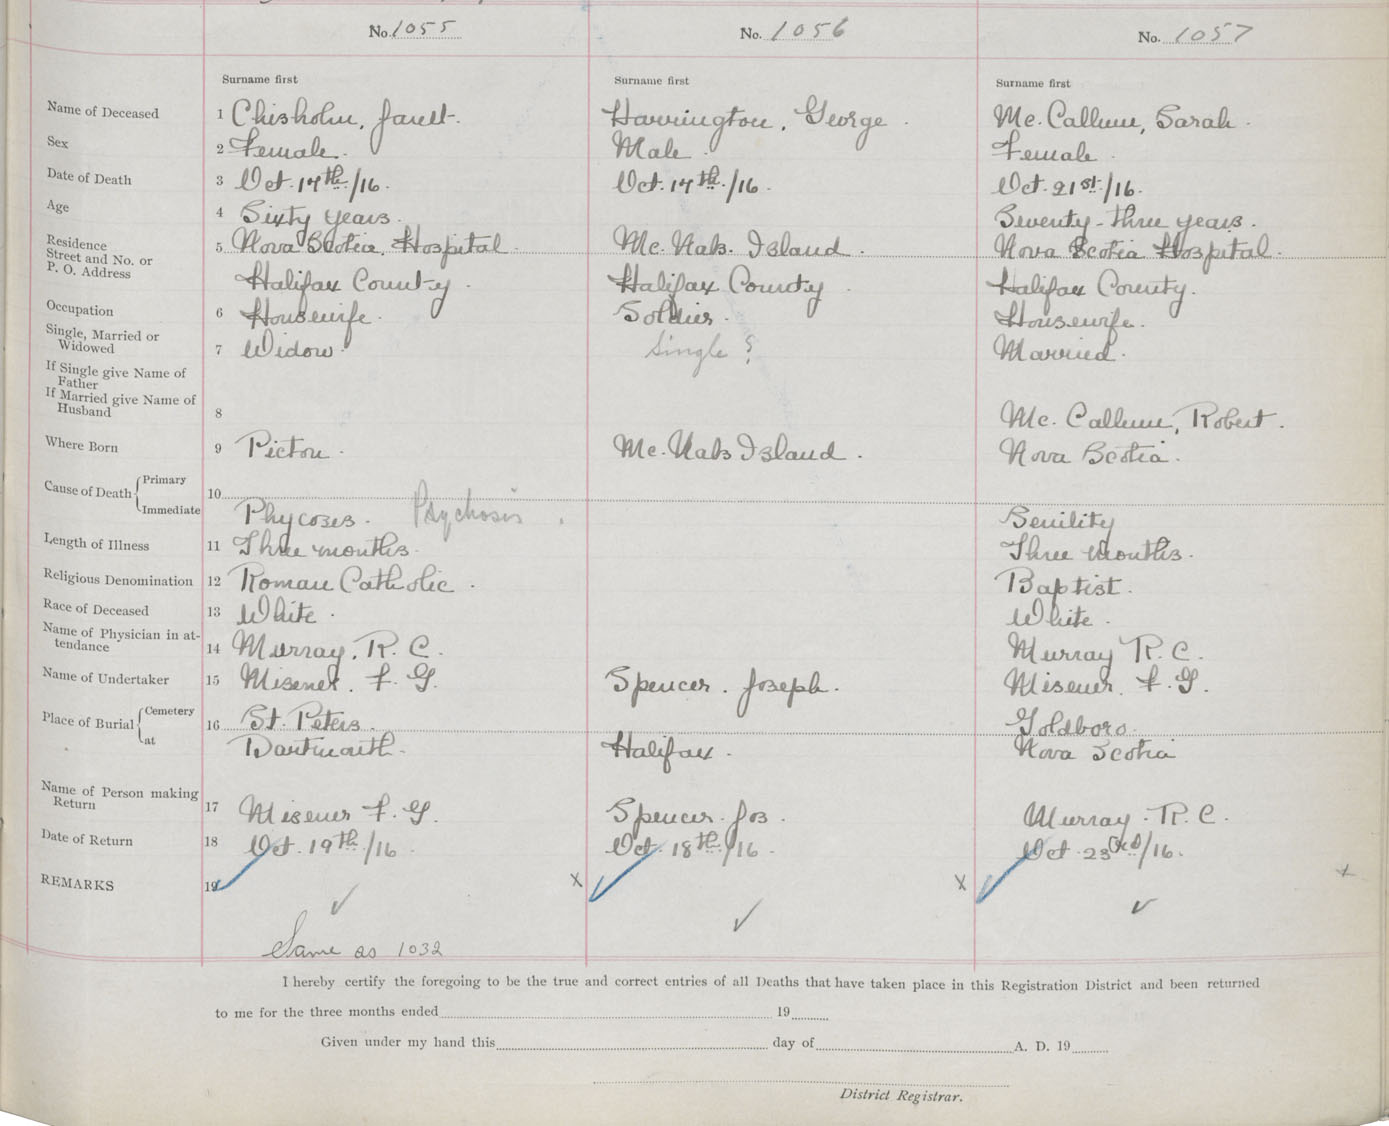 No. 1055 No. 1056 No. 1057
Surname first Surname first Surname first
Name of Deceased 1 Chisholm, Janet. Harrington, George. Mc.Callum, Sarah.
Sex 2 Female. Male. Female.
Date of Death 3 Oct. 17th/16. Oct. 17th/16. Oct. 21st/16.
Age 4 Sixty years. Seventy-three years.
Residence
Street and No. or
P. O. Address
5 Nova Scotia Hospital. Mc.Nabs. Island. Nova Scotia Hospital.
Halifax County. Halifax County. Halifax County.
Occupation 6 Housewife. Soldier. Housewife.
Single, Married or
Widowed
7 Widow. Single ? Married.
If Single give Name of
Father
If Married give Name of
Husband
8 Mc. Callum, Robert.
Where Born 9 Pictou. Mc.Nabs Island. Nova Scotia.
Cause of Death Primary 10
Immediate Phycoses. Psychosis. Senility
Length of Illness 11 Three months. Three months.
Religious Denomination 12 Roman Catholic. Baptist.
Race of Deceased 13 White. White.
Name of Physician in at-
tendance
14 Murray. R. C. Murray R. C.
Name of Undertaker 15 Misener. F. G. Spencer. Joseph. Misener. F. G.
Place of Burial Cemetery 16 St. Peters. Goldboro.
at Dartmouth. Halifax. Nova Scotia
Name of Person making
Return
17 Misener F. G. Spencer. Jos. Murray. R. C.
Date of Return 18 Oct. 19th/16. Oct. 18th/16. Oct. 23rd/16.
REMARKS 19 x x x
Same as 1032
I hereby certify the foregoing to be the true and correct entries of all Deaths that have taken place in this Registration District and been returned
to me for the three months ended 19
Given under my hand this day of A. D. 19
District Registrar.